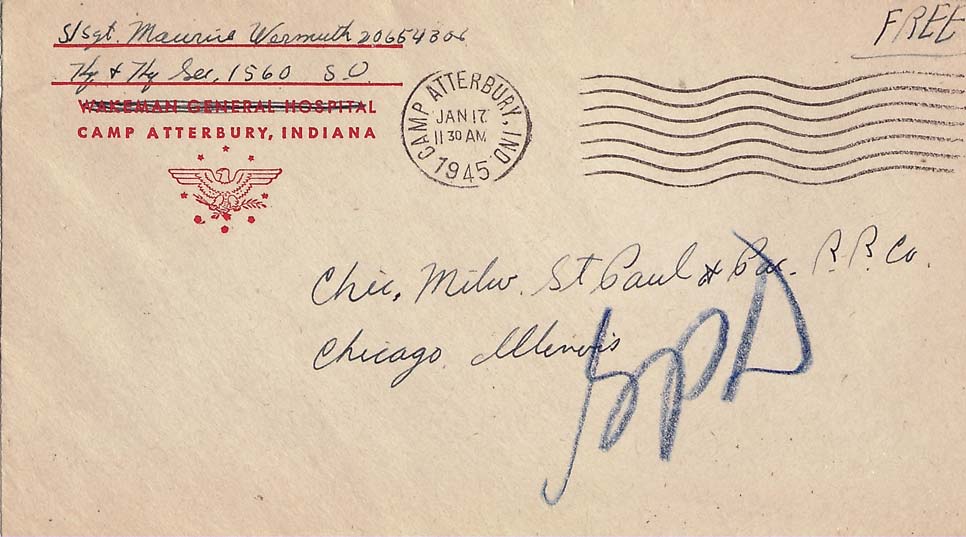 S/Sgt. Maurice Wermuth 20654306
Hq & Hq Sec, 1560 S.U.
WAKEMAN GENERAL HOSPITAL
CAMP ATTERBURY, INDIANA
FREE
CAMP ATTERBURY, IND
JAN 17
11 30 AM
1945
Chic, Milw. St Paul & Pac. R.R. Co.
Chicago, Illinois